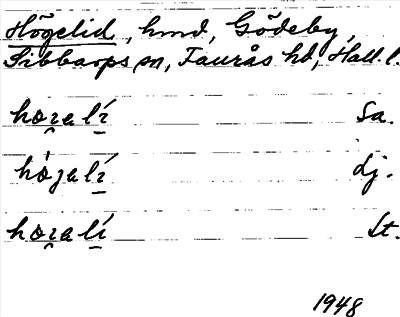 Högelid, hmd, Gödeby,
Sibbarps sn, Faurås hd, Hall. l.
hozalí Sa.
hógalí dj.
hozalí St.
1948